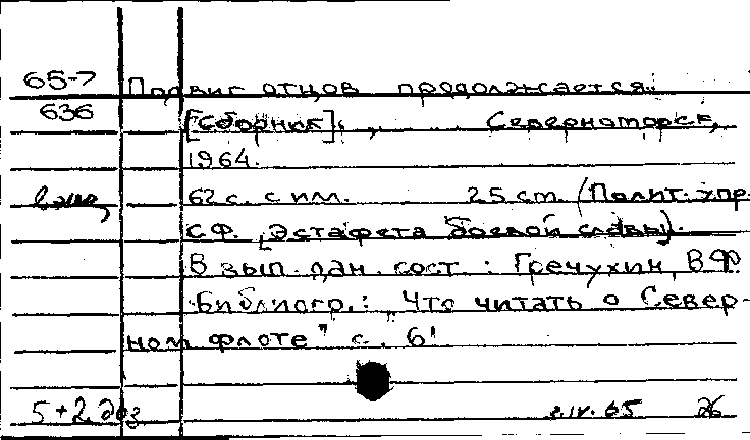 65-7 Подвиг отцов продолжается.
636 [Сборник]. , Североморск,
1964.
62 с. с илл. 25 см. (Полит. упр.
СФ. [Эстафета боевой славы].
В вып. дан. сост.: Гречухин, В Ф
Библиогр.: „Что читать о Север-
ном флоте" с. 61
5+2 2.IV.65 26